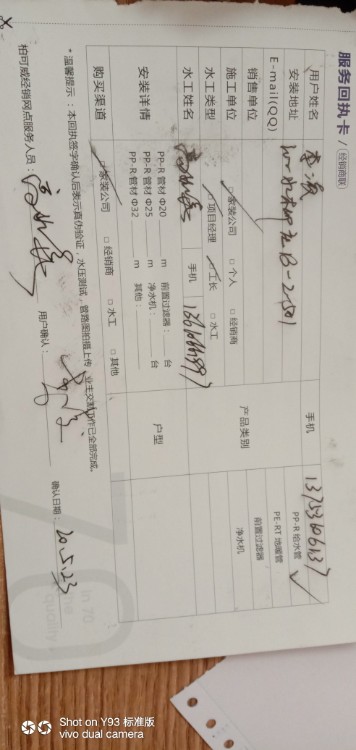 服务回执卡 / 经销商联
用户姓名 手机 13753606137
安装地址 B-2-501 PP-R 给水管 ✓
E-mail(QQ) PE-RT 地暖管
销售单位 产品类别 前置过滤器
净水机
施工单位 ✓家装公司 □个人 □经销商
水工类型 ✓项目经理 ✓工长 □水工
水工姓名 手机
安装详情 PP-R 管材 Φ20 m 前置过滤器: 台 户型
PP-R 管材 Φ25 m 净水机: 台
PP-R 管材 Φ32 m 其他:
购买渠道 ✓家装公司 □经销商 □水工 □其他
*温馨提示:本回执签字确认后表示真伪验证,水压测试,管路图拍摄上传,业主交割工作已全部完成。
柏可威经销网点服务人员: 用户确认: 确认日期: 20.5.23
Shot on Y93 标准版
vivo dual camera